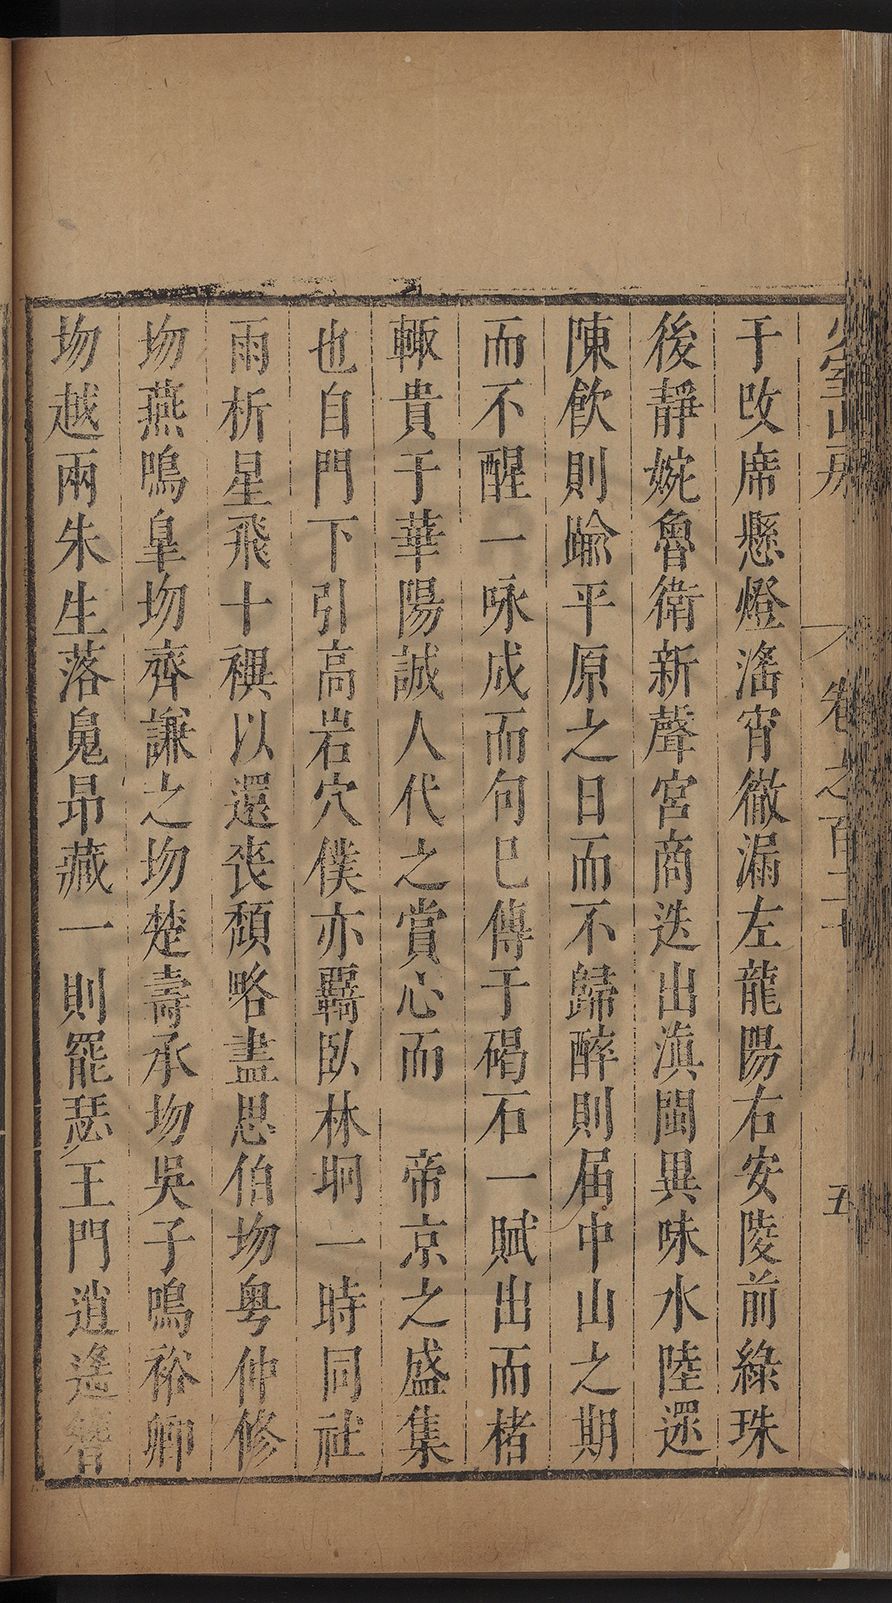 少室山房
卷之百二十
五
于改席懸燈滛宵徹漏左龍陽右安陵前綠珠
後靜婉魯衛新聲宮商迭出滇閩異味水陸還
陳飲則踰平原之日而不歸醉則届中山之期
而不醒一咏成而句巳傳于碣石一賦出而楮
輙貴于華陽誠人代之賞心而　帝京之盛集
也自門下引高岩穴僕亦羈臥林坰一時同社
雨析星飛十禩以還丧頹略盡思伯歾粤仲修
歾燕鳴臯歾齊謙之歾楚壽承歾吳子鳴裕卿
歾越兩朱生落䰟昂藏一則罷瑟王門逍遙